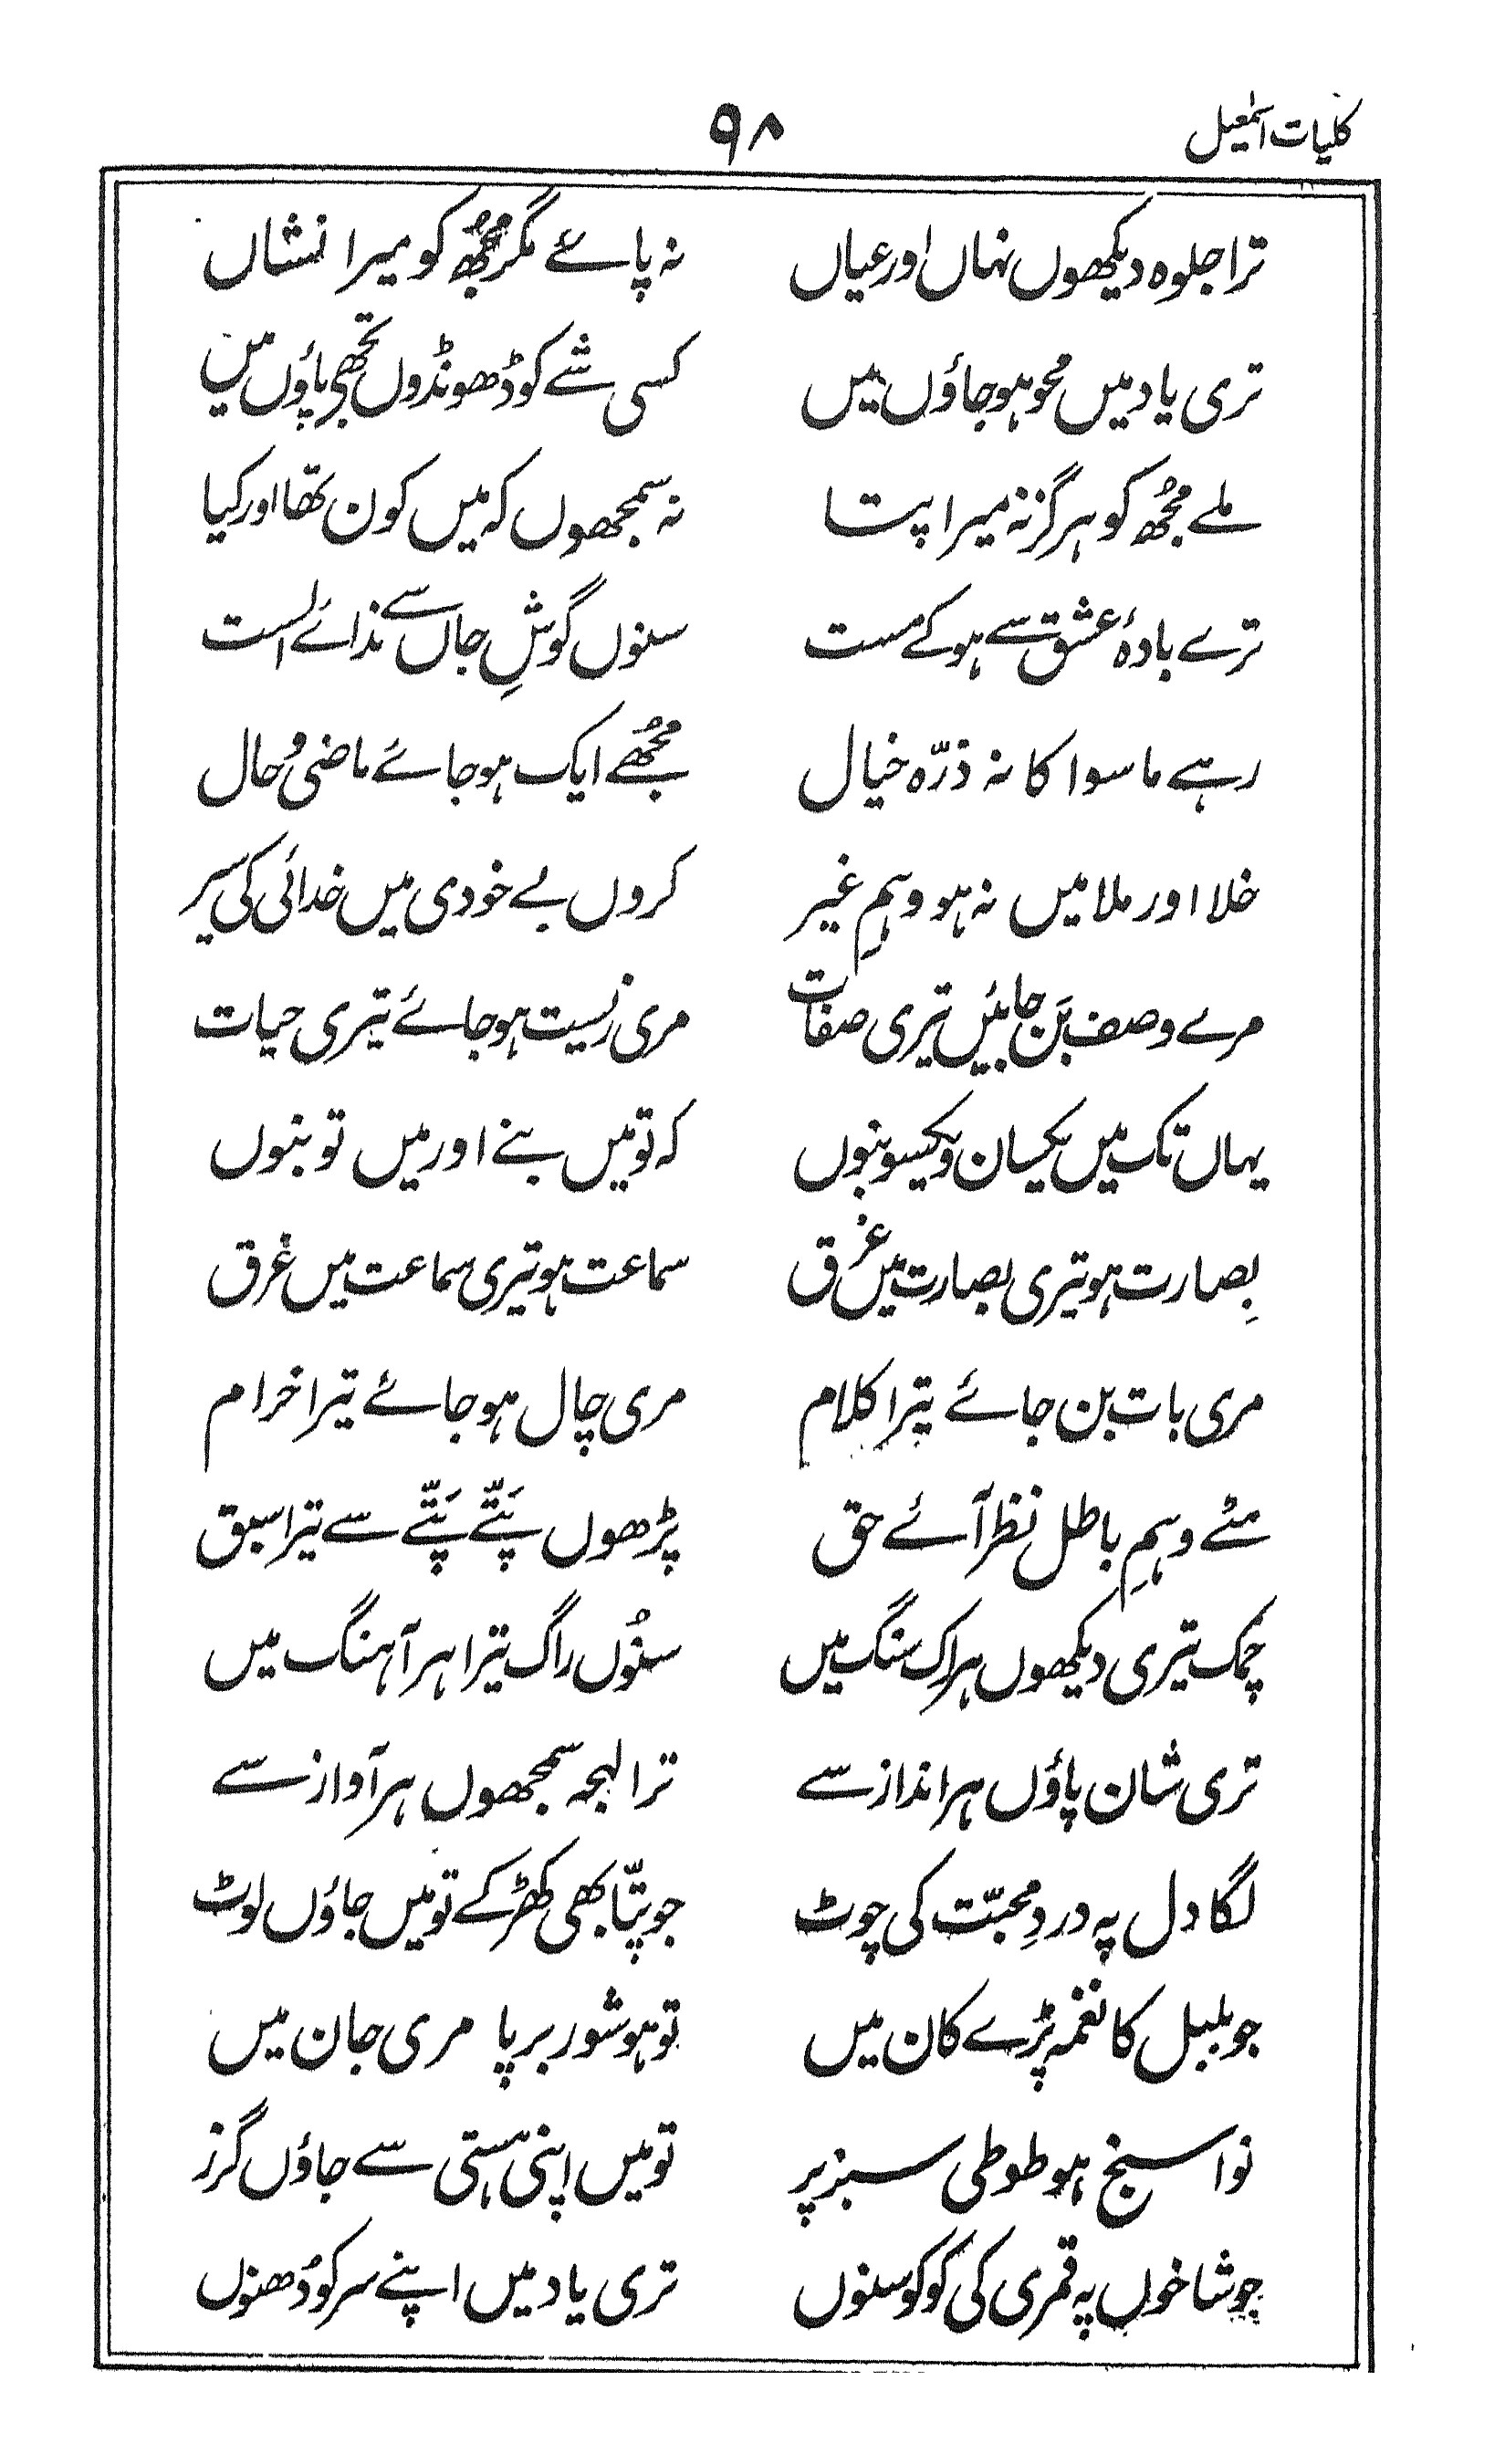 کلیات اسمٰعیل ۹۸
ترا جلوہ دیکھوں نہاں اور عیاں نہ پائے مگر مجُھ کو میرا نشاں
تری یاد میں محو ہو جاؤں میں کسی شے کو ڈھونڈوں تجھی پاؤں میں
ملے مجُھ کو ہرگز نہ میرا پتا نہ سمجھوں کہ میں کون تھا اور کیا
ترے بادۂ عشق سے ہو کے مست سنوں گوشِ جاں سے ندائے الست
رہے ماسوا کا نہ ذرّہ خیال مجُھے ایک ہو جائے ماضی و حال
خلا اور ملا میں نہ ہو وہمِ غیر کروں بے خودی میں خدائی کی سیر
مرے وصف بَن جائیں تیری صفات مری زیست ہو جائے تیری حیات
یہاں تک میں یکسان و یکسو بنوں کہ تو میں بنے اور میں تو بنوں
بِصارت ہو تیری بصارت میں غرق سماعت ہو تیری سماعت میں غرق
مری بات بن جائے تیرا کلام مری چال ہو جائے تیرا خرام
مٹے وہمِ باطل نظر آئے حق پڑھوں پَتّے پَتّے سے تیرا سبق
چمک تیری دیکھوں ہر اک سنگ میں سنُوں راگ تیرا ہر آہنگ میں
تری شان پاؤں ہر انداز سے ترا لہجہ سمجھوں ہر آواز سے
لگا دل پہ دردِ محبّت کی چوٹ جو پتّا بھی کھڑکے تو میں جاؤں لوٹ
جو بلبل کا نغمہ پڑے کان میں تو ہو شور برپا مری جان میں
نوا سنج ہو طوطی سبز پر تو میں اپنی ہستی سے جاؤں گزر
جو شاخوں پہ قمری کی کوکو سنوں تری یاد میں اپنے سر کو دُھنوں